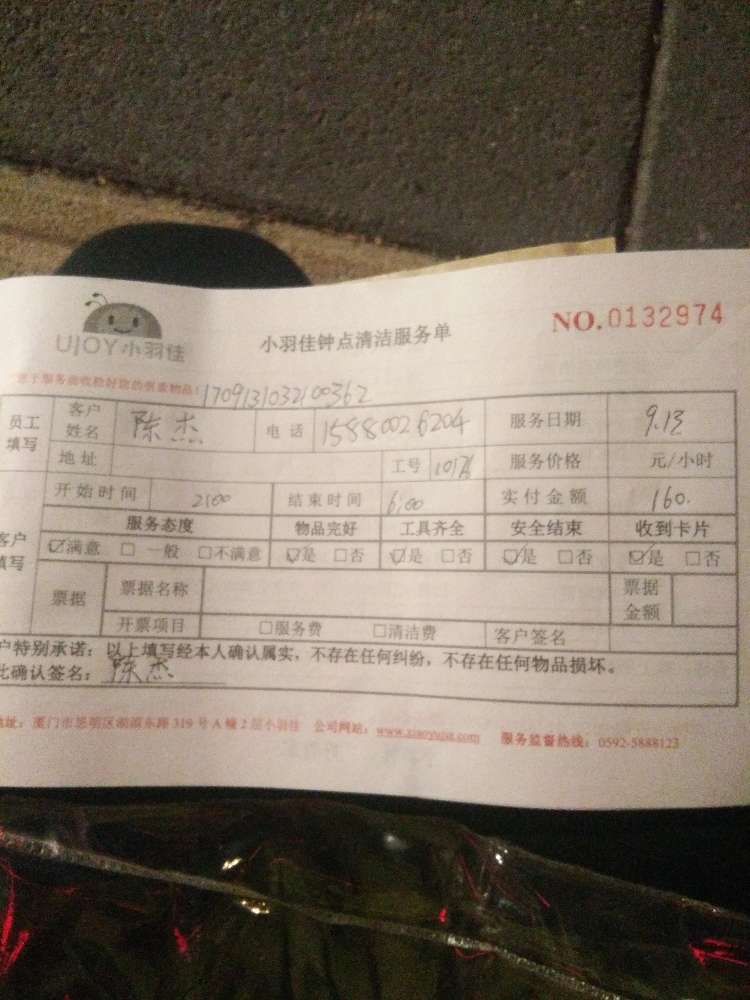 UJOY小羽佳
小羽佳钟点清洁服务单
NO.0132974
于服务前收检好您的贵重物品!
1709131032100362
员工填写 客户姓名 陈杰 电话 15880026204 服务日期 9.13
地址 工号 服务价格 元/小时
开始时间 2:00 结束时间 6:00 实付金额 160.
客户填写 服务态度 物品完好 工具齐全 安全结束 收到卡片
☑满意 □一般 □不满意 ☑是 □否 ☑是 □否 ☑是 □否 ☑是 □否
票据 票据名称 票据金额
开票项目 □服务费 □清洁费 客户签名
户特别承诺:以上填写经本人确认属实,不存在任何纠纷,不存在任何物品损坏。
此确认签名:陈杰
地址:厦门市思明区湖滨东路319号A幢2层小羽佳 公司网站:www.xiaoyujia.com 服务监督热线:0592-5888123